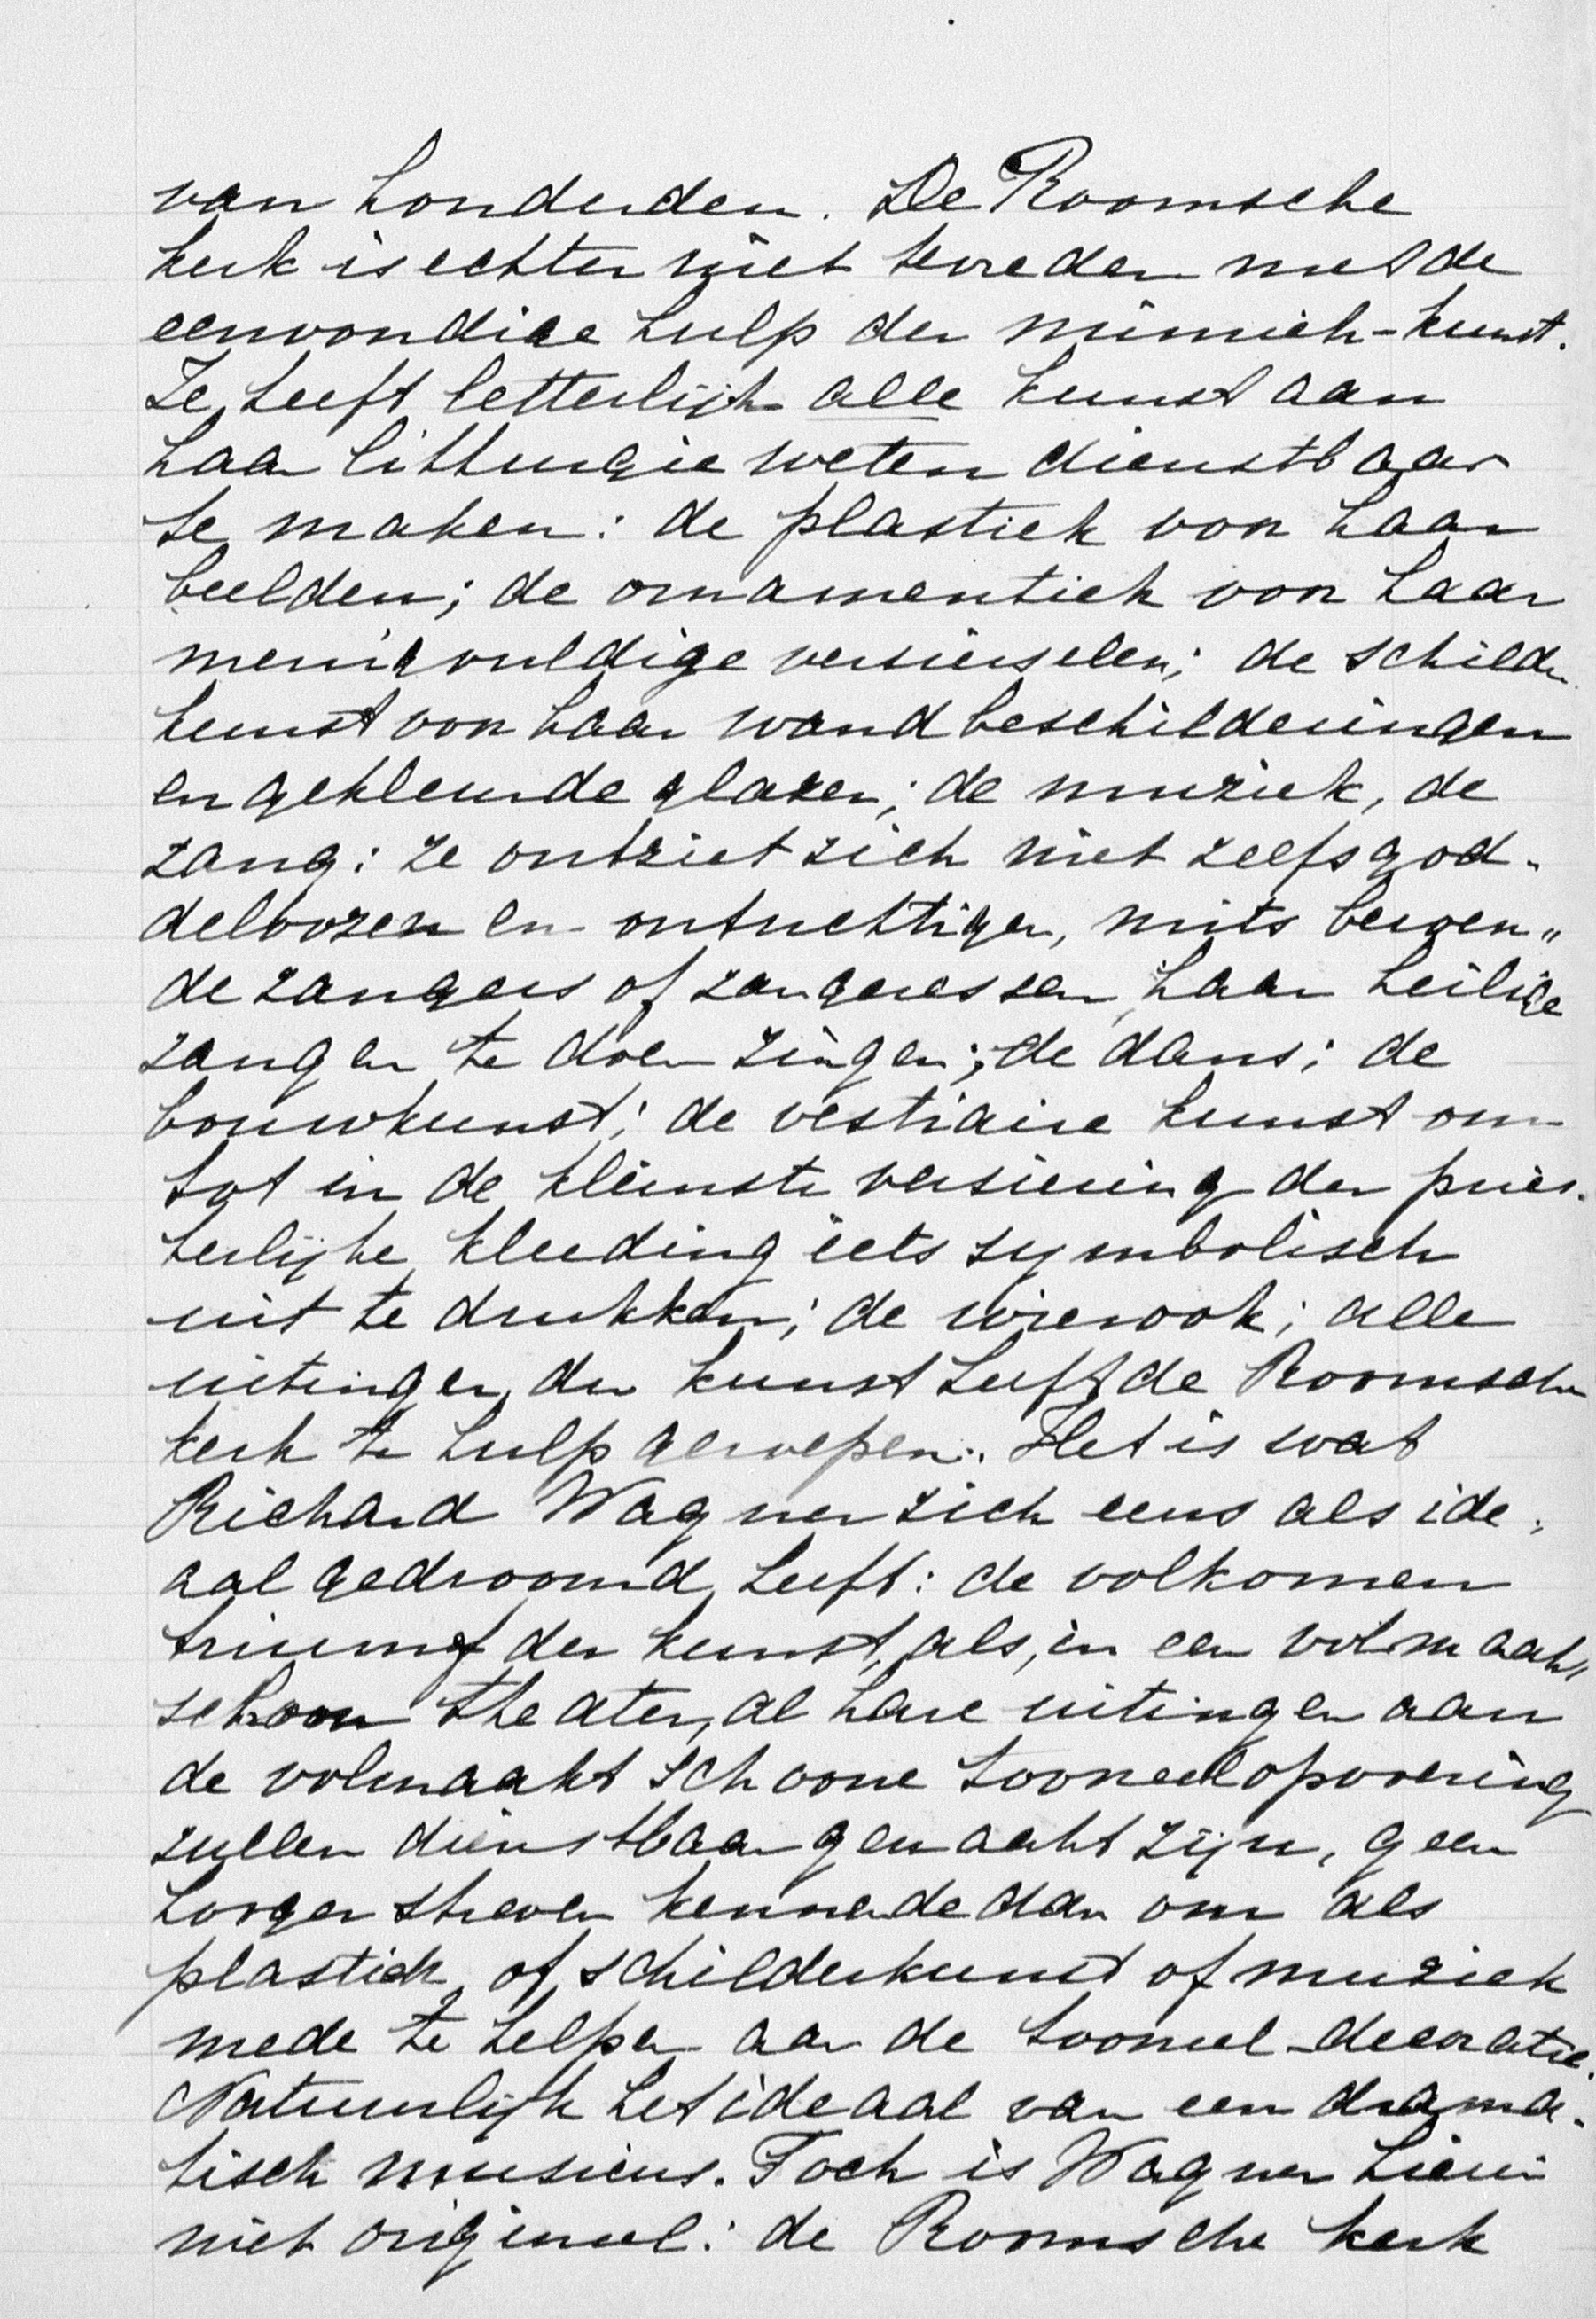 van honderden. De Roomsche
kerk is echter niet tevreden met de
eenvoudige hulp der mimiek-kunst.
Ze heeft letterlijk alle kunst aan
haar litturgie weten dienstbaar
te maken: de plastiek voor haar
beelden; de ornamentiek voor haar
menigvuldige versierselen; de schilder
kunst voor haar wandbeschilderingen
en gekleurde glazen; de muziek, de
zang: ze ontziet zich niet zelfs god-
deloozen en ontuchtigen, mits beroem"
de zangers of zangeressen, haar heilige
zangen te doen zingen; de dans; de
bouwkunst; de vestiaire kunst om
tot in de kleinste versiering der pries-
terlijke kleeding iets symbolisch
uit te drukken; de wierook; alle
uitingen der kunst heeft de Roomsche
kerk te hulp geroepen. Het is wat
Richard Wagner zich eens als ide-
aal gedroomd heeft: de volkomen
triumf der kunst, als, in een volmaakt"
schoon theater, al hare uitingen aan
de volmaakt schoone tooneelopvoering
zullen dienstbaar gemaakt zijn, geen
hooger streven kennende dan om als
plastiek, of schilderkunst of muziek
mede te helpen aan de tooneel-decoratie.
Natuurlijk het ideaal van een drama-
tisch musicus. Toch is Wagner hierin
niet origineel: de Roomsche kerk